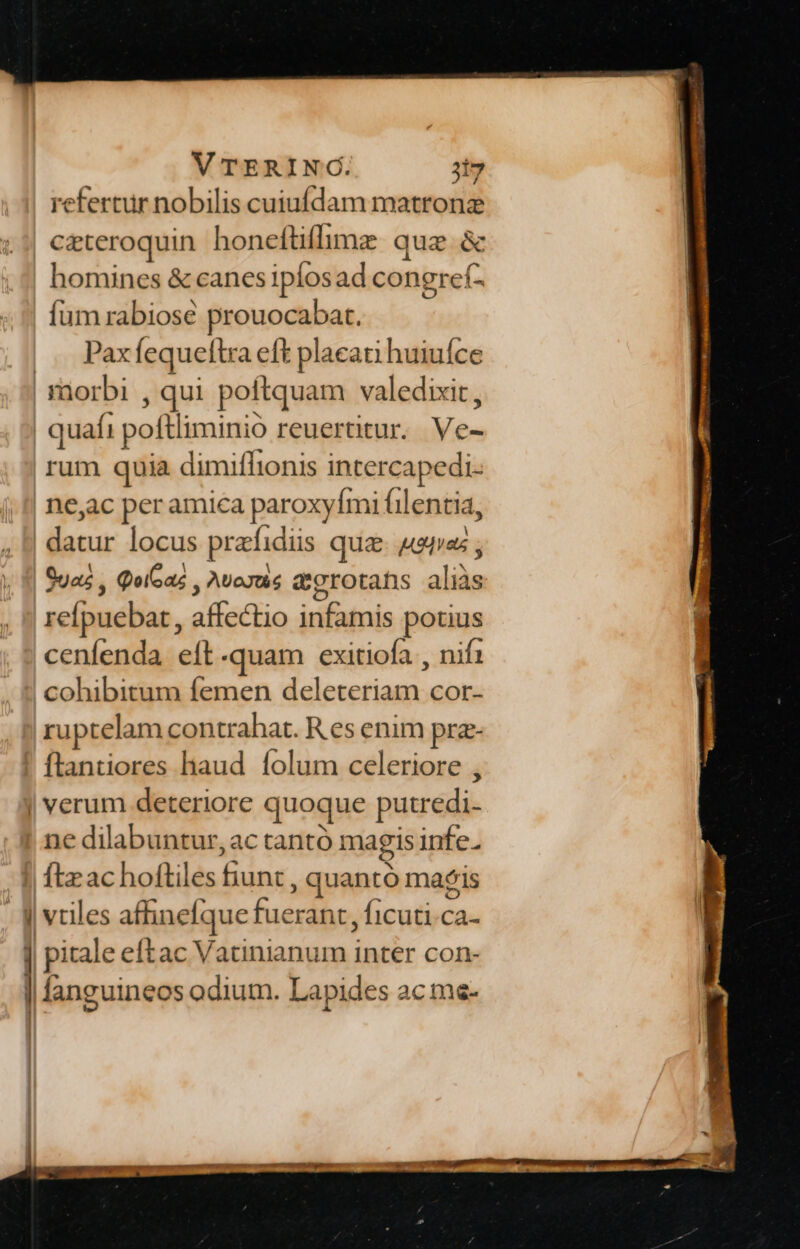 VTERINO. 317
refertur nobilis cuiuſdam matronæ
cæteroquin honeſtiſſimæ quæ &
homines & canes ipſos ad congreſ-
ſum rabiosè prouocabat.
Pax ſequeſtra eſt placati huiuſce
morbi , qui poſtquam valedixit,
quaſi poſtliminiò reuertitur. Ve-
rum quia dimiſſionis intercapedi-
ne,ac per amica paroxyſmi ſilentia,
datur locus præſidiis quæ
ægrotans aliàs
reſpuebat, affectio infamis potius
cenſenda eſt quam exitioſa , niſi
cohibitum ſemen deleteriam cor-
ruptelam contrahat. Res enim præ-
ſtantiores haud ſolum celeriore ,
verum deteriore quoque putredi-
ne dilabuntur, ac tantò magis infe-
ſtæ ac hoſtiles fiunt , quantò magis
vtiles affineſque fuerant, ſicuti ca-
pitale eſt ac Vatinianum inter con-
ſanguineos odium. Lapides ac me-